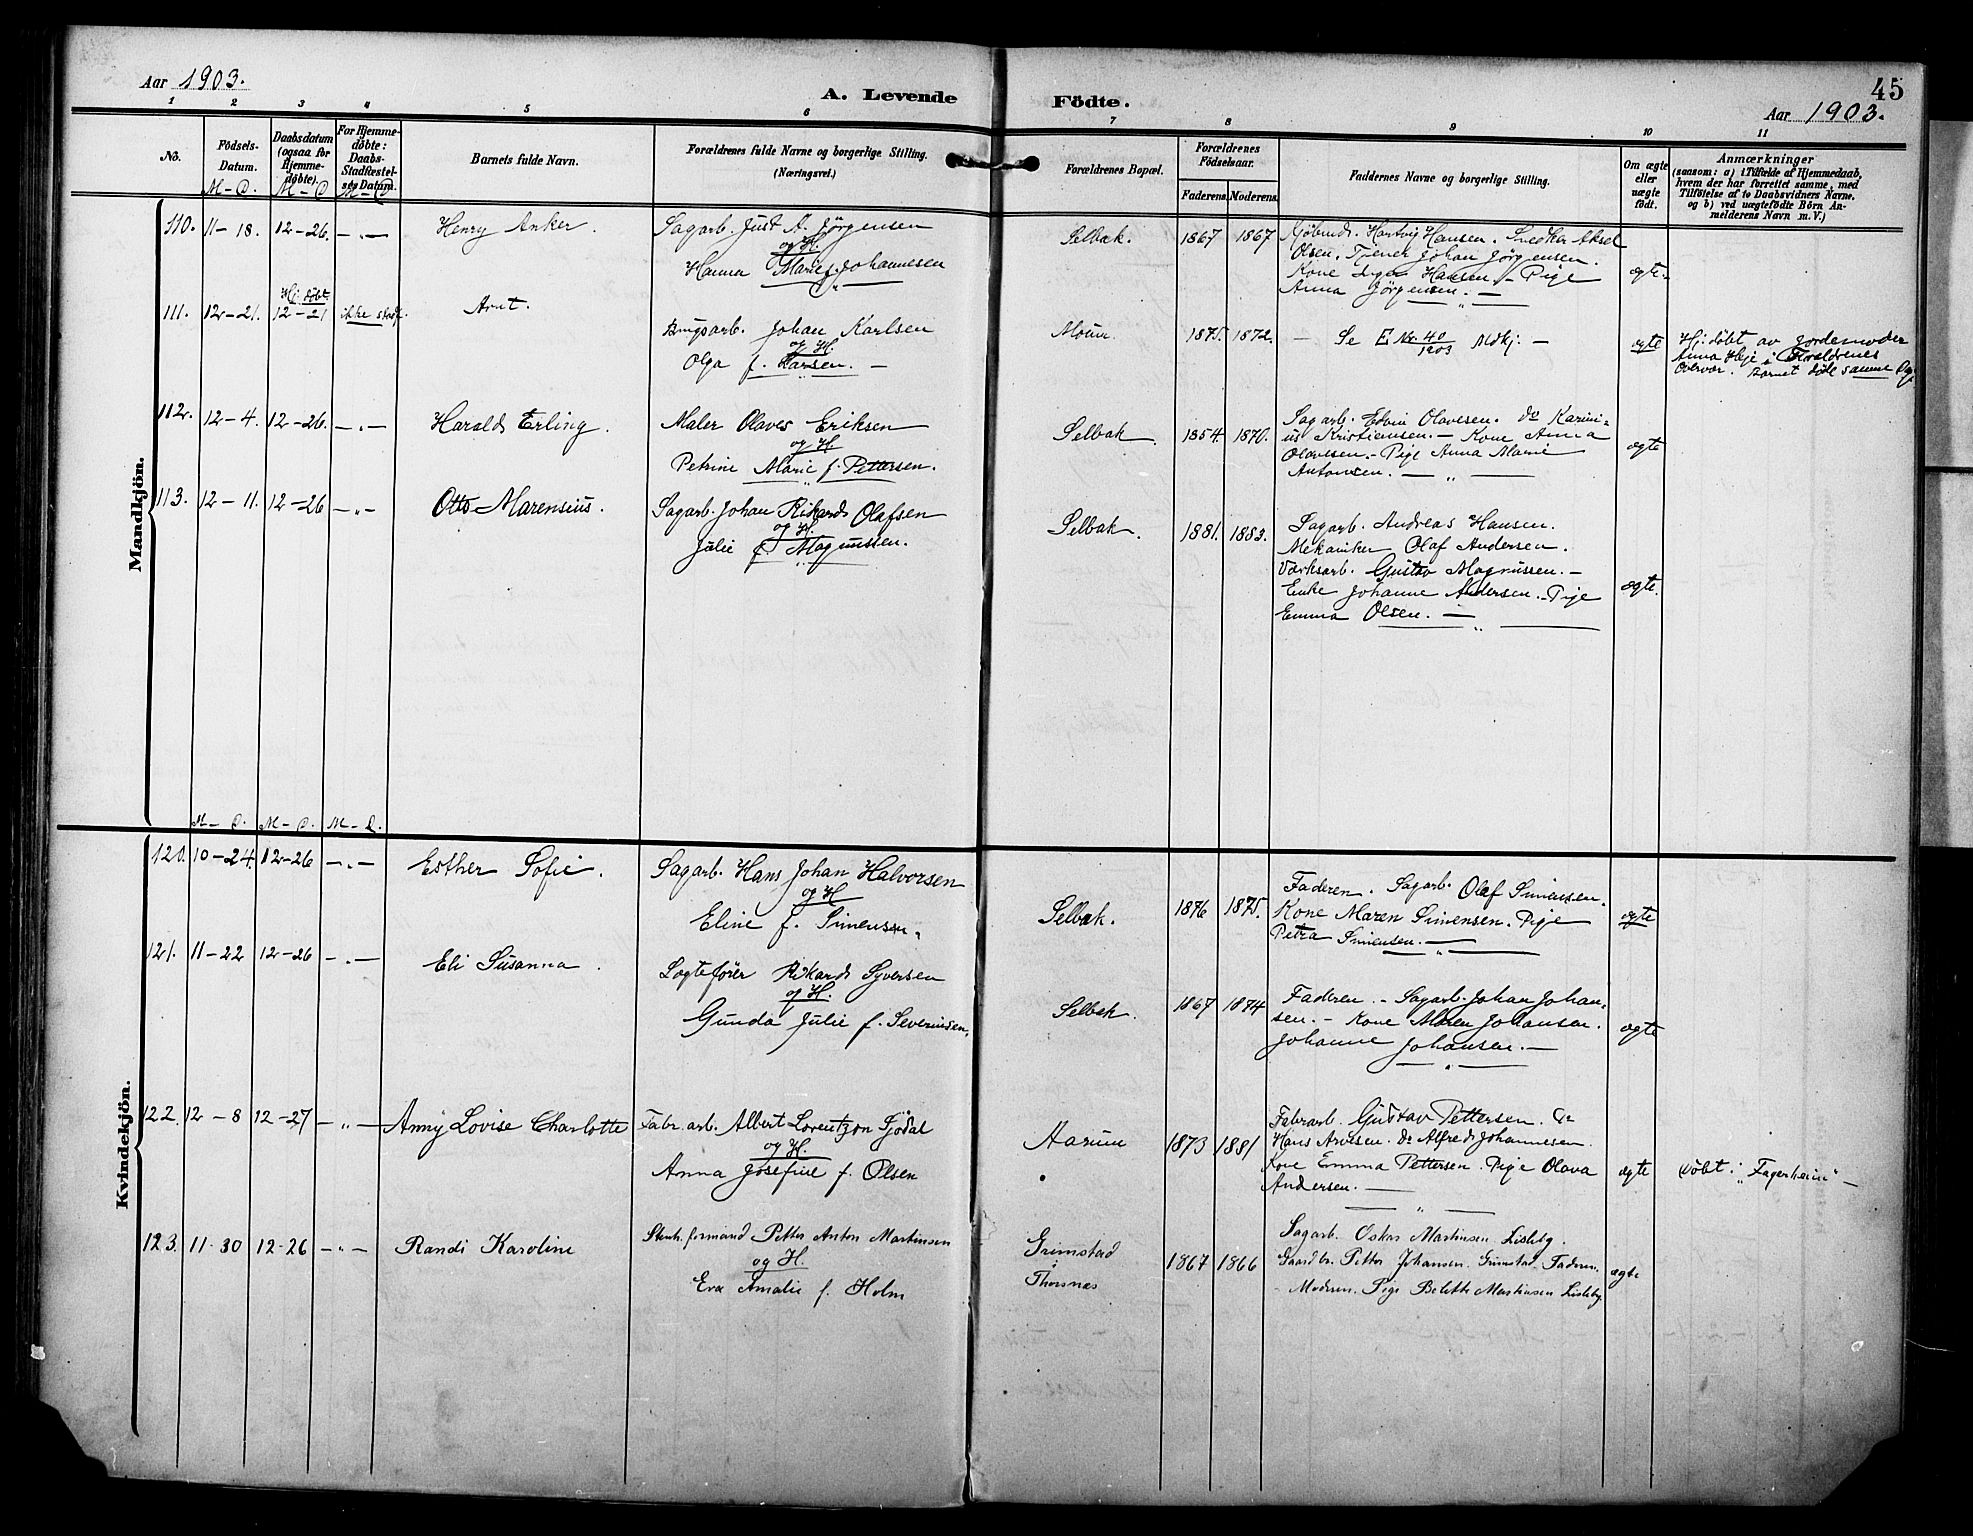 Aar 1903.
A. Levende Födte.
45
Aar 1903.
1 2 3 4 5 6 7 8 9 10 11
No.
Födsels-
Datum.
M – D.
Daabsdatum
(ogsaa for
Hjemme-
döbte).
M – D
For Hjemme-
döbte:
Daabs-
Stadfæstel-
ses Datum.
M – D
Barnets fulde Navn.
Forældrenes fulde Navne og borgerlige Stilling.
(Næringsvei.)
Forældrenes Bopæl.
Forældrenes
Födselsaar.
Faderens. Moderens.
Faddernes Navne og borgerlige Stilling.
Om ægte
eller
uægte
födt.
Anmærkninger
(saasom: a) i Tilfælde af Hjemmedaab,
hvem der har forrettet samme, med
Tilföielse af to Daabsvidners Navne.
og b) ved uægtefödte Börn An-
melderens Navn m. V.)
Mandkjön.
110. 11–18. 12–26. –„– Henry Anker.
Sagarb. Just A. Jörgensen
og H.
Hanna Marie f. Johannesen
Selbak. 1867 1867
Hartvig Hansen. Snedker Aksel
Olsen. Tjener Johan Jörgensen.
Kone Inga Hansen. – Pige
Anna Jörgensen. –
ægte.
111. 12–21. Hj. döbt.
12–21 ikke stadf. Arnt.
Brugsarb. Johan Karlsen
og H.
Olga f. Larsen. –
Moum 1875. 1872.
– Se E Nr. 40/1903 Mdkj. –
ægte
Hj. döbt av jordemoder
Anna Heje i Forældrenes
Overvær. Barnet döde samme Dag.
112. 12–4. 12–26. –„– Harald Erling.
Maler Olaves Eriksen
og H
Petrine Marie f. Pettersen.
Selbak. 1854 1870.
Sagarb. Edvin Olavesen. do Karini-
us Kristiansen. – Kone Anna
Olavesen. – Pige Anna Marie
Antonsen. –
ægte
113. 12–11. 12–26 –„– Otto Marensius.
Sagarb. Johan Rikard Olafsen
og H.
Julie f. Magnussen.
Selbak. 1881. 1883.
Sagarb. Andreas Hansen.
Mekaniker Olaf Andersen.
Værksarb. Gustav Magnussen. –
Enke Johanne Andersen. – Pige
Emma Olsen. –
ægte.
M – D. M – D. M – D.
Kvindekjön.
120. 10–24. 12–26 –„– Esther Sofie.
Sagarb. Hans Johan Halvorsen
og H
Eline f. Simensen.
Selbak. 1876 1875.
Faderen. Sagarb. Olaf Simensen.
Kone Maren Simensen. Pige
Petra Simensen. –
ægte
121. 11–22 12–26 –„– Eli Susanna.
Logtefører Rikard Syversen
og H.
Gunda Julie f. Severinsen.
Selbak. 1867 1874
Faderen. – Sagarb. Johan Johan-
sen. – Kone Maren Johansen.
Johanne Johansen. –
ægte
122. 12–8 12–27 –„– Anny Lovise Charlotte
Fabr. arb. Albert Lorentzon Sjödal
og H.
Anna Josefine f. Olsen
Aarum 1873 1881
Fabrarb. Gustav Pettersen. do
Hans Arvesen. do Alfred Johannesen.
Kone Emma Pettersen. Pige Olava
Andersen. –
ægte
Döbt i „Fagerheim“ –
123. 11-30 12-26 –„– Randi Karoline
Stenh. formand Petter Anton Martinsen
og H.
Eva Amalie f. Holm
Grimstad
i
Thorsnæs
1867 1866
Sagarb. Oskar Martinsen Lisleby.
Gaardbr. Petter Johansen. Grimstad. Faderen.
– Moderen. Pige Belette Martinsen Lisleby.
ægte